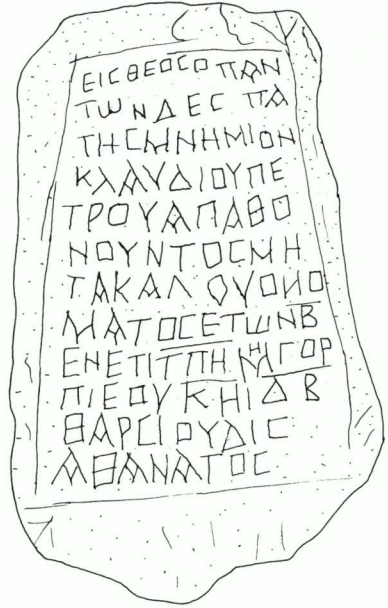 ΕΙCΘΕΟCΟΠΑΝ
ΤΩΝΔΕCΠΑ
ΤΗCΜΝΗΜΙΟΝ
ΚΛΑΥΔΙΟΥΠΕ
ΤΡΟΥΑΠΑΘΟ
ΝΟΥΝΤΟCΜΗ
ΤΑΚΑΛΟΥΟΝΟ
ΜΑΤΟCΕΤΩΝΒ
ΕΝΕΤΙΤΠΗ ΓΟΡ
ΠΙΕΟΥΚΗΙΔΒ
ΘΑΡCΙΟΥΔΙC
ΑΘΑΝΑΤΟC